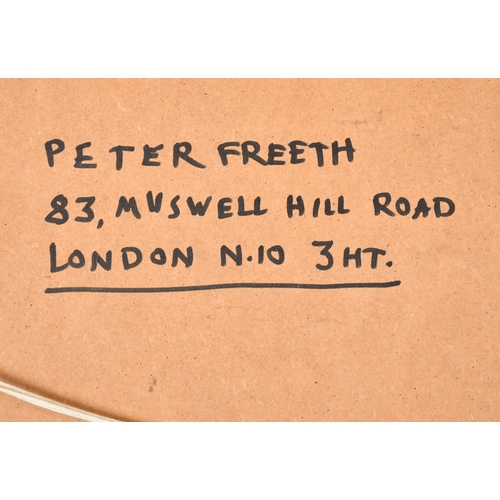 PETER FREETH
83, MUSWELL HILL ROAD
LONDON N.10 3HT.